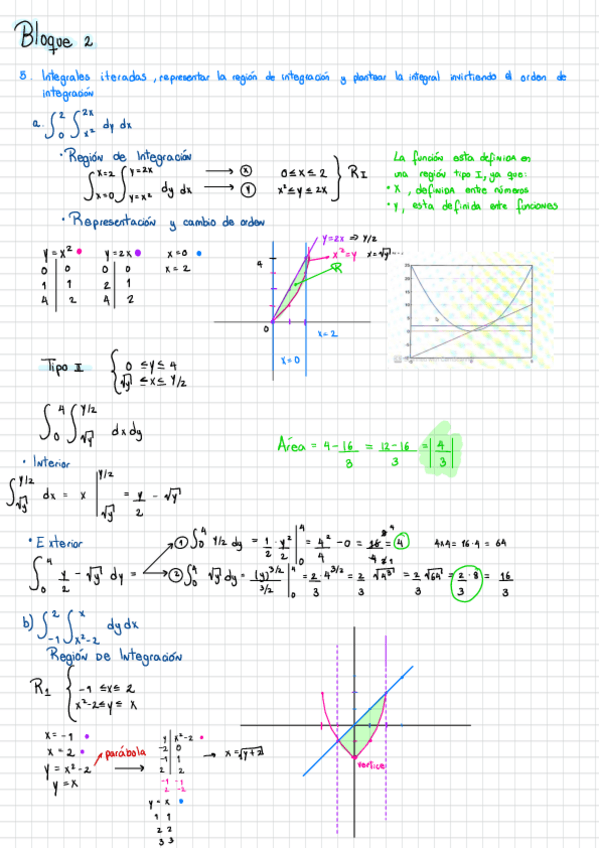 Bloque 2
5. Integrales iteradas, representar la región de integración y plantear la integral invirtiendo el orden de
integración
a. ∫₀² ∫ₓ²^2x dy dx
• Región de Integración
∫x=0^x=2 ∫y=x²^y=2x dy dx → (x) 0≤x≤2
→ (y) x²≤y≤2x } R I
La función esta definida en
una región tipo I, ya que:
• x, definida entre números
• y, esta definida ente funciones
• Representación y cambio de orden
y=x² y=2x x=0
0 0 0 0 x=2
1 1 2 1
4 2 4 2
y=2x ⇒ y/2
x²=y x=√y
R
4
0
x=2
x=0
Tipo I { 0≤y≤4
√y ≤x≤ y/2
∫₀⁴ ∫√y^y/2 dx dy
Área = 4-16/3 = 12-16/3 = |4/3|
• Interior
∫√y^y/2 dx = x |√y^y/2 = y/2 - √y
• Exterior
① ∫₀⁴ y/2 dy = 1/2 · y²/2 |₀⁴ = 4²/4 - 0 = 16/4 = 4 4x4=16·4=64
∫₀⁴ y/2 - √y dy = ② ∫₀⁴ √y dy = (y)^3/2 / 3/2 |₀⁴ = 2/3 · 4^3/2 = 2/3 √4³ = 2/3 √64 = 2/3 · 8 = 16/3
b) ∫₋₁² ∫ₓ²₋₂^x dy dx
Región De Integración
R₁ { -1 ≤x≤ 2
x²-2≤y≤ x
x=-1
x=2
y=x²-2 parábola
y=x
y x²-2
-2 0
-1 1
2 2
-1 -1
2 -2
→ x=√y+2
y=x
1 1
2 2
3 3
vertice